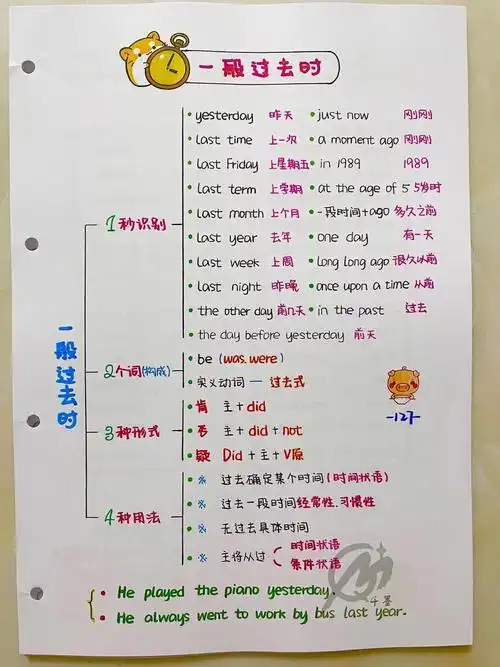 一般过去时
yesterday 昨天 just now 刚刚
last time 上一次 a moment ago 刚刚
last Friday 上星期五 in 1989 1989
last term 上学期 at the age of 5 5岁时
1秒识别 last month 上个月 一段时间+ago 多久之前
last year 去年 one day 有一天
last week 上周 long long ago 很久以前
last night 昨晚 once upon a time 从前
the other day 前几天 in the past 过去
the day before yesterday 前天
一般过去时
2个词(构成) be (was. were)
实义动词 — 过去式
-127-
3种形式 肯 主+did
否 主+did+not
疑 Did+主+V原
4种用法 ※ 过去确定某个时间(时间状语)
※ 过去一段时间经常性.习惯性
※ 无过去具体时间
※ 主将从过 时间状语
条件状语
千墨
He played the piano yesterday.
He always went to work by bus last year.